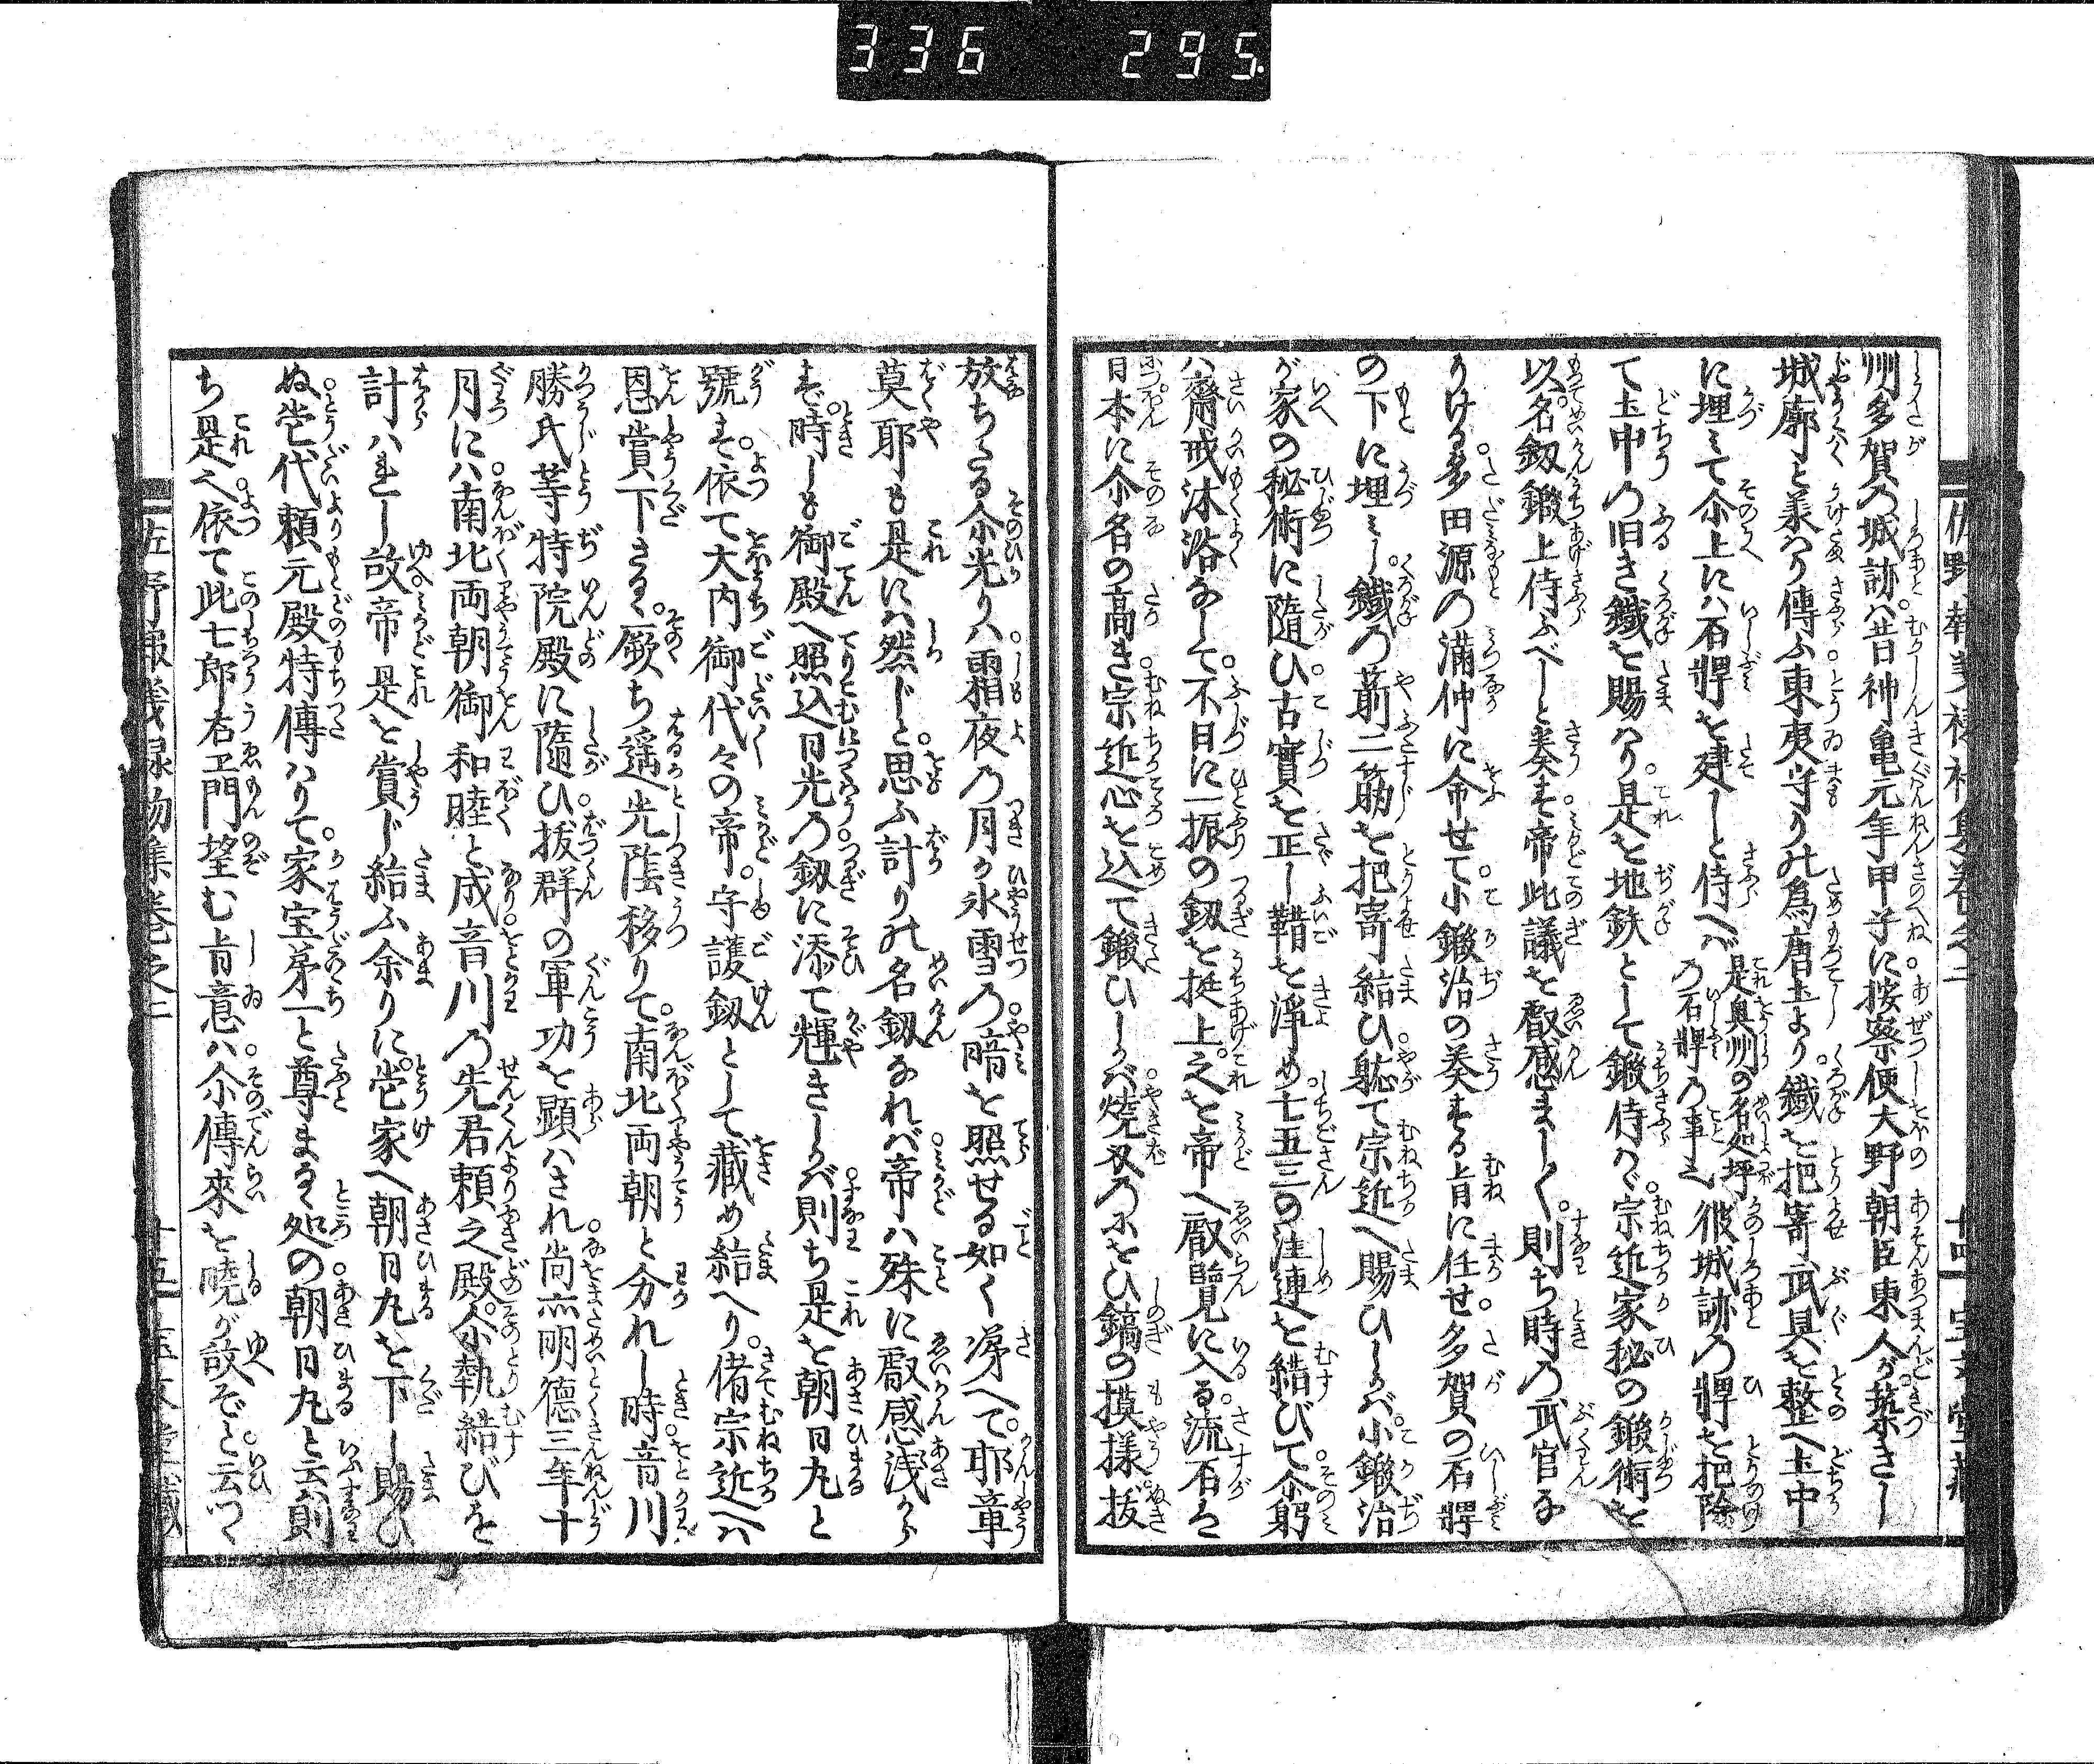 336 295.
州多賀の城跡ハ昔日神亀元年甲子に按察使大野朝臣東人が築きし
城廓と義ハり傳ふ東夷守りの為唐土より鐵を把寄武具を整へ土中
に埋ミて尒上にハ石碑を建しと侍へバ是奥州の名処坪の石碑の事之彼城跡の碑を把除
て土中の旧き鐵を賜ハり是を地鉄として鍛侍ハヾ宗近家秘の鍛術を
以名釼鍛上侍ふべしと奏す帝此議を叡感まし〳〵則ち時の武官な
りける多田源の満仲に命せて小鍛治の奏する旨に任せ多賀の石碑
の下に埋ミし鐵の箭二筋を把寄給ひ躮て宗近へ賜ひしかバ小鍛治
が家の秘術に随ひ古實を正し鞴を浄め七五三の注連を結びて尒躬
ハ齋戒沐浴なして不日に一振の釼を挺上之を帝へ叡覽に入る流石は
日本に尒名の高き宗近心を込て鍛ひしかバ焼刄のにをひ鎬の摸様抜
放ちたる尒光りハ霜夜の月か氷雪の暗を照せる如く凄へて耶章
莫耶も是にハ然じと思ふ計りの名釼なれバ帝ハ殊に叡感浅から
ず時しも御殿へ照込日光の釼に添て輝きしかバ則ち是を朝日丸と
號す依て大内御代々の帝守護釼として藏め給へり偖宗近へハ
恩賞下さるく厥ち遥光陰移りて南北両朝と分れし時音川
勝氏等特院殿に随ひ抜群の軍功を顕ハされ尚亦明德三年十
月にハ南北両朝御和睦と成音川の先君頼之殿尒執結びを
計ハれし故帝是を賞じ給ふ余りに当家へ朝日丸を下し賜ひ
ぬ当代頼元殿特傳ハりて家宝第一と尊まるく処の朝日丸と云則
ち是之依て此七郎右エ門望む旨意ハ尒傳來を曉が故ぞと云つく
佐野報義録物集巻之二 十五 宝文堂藏